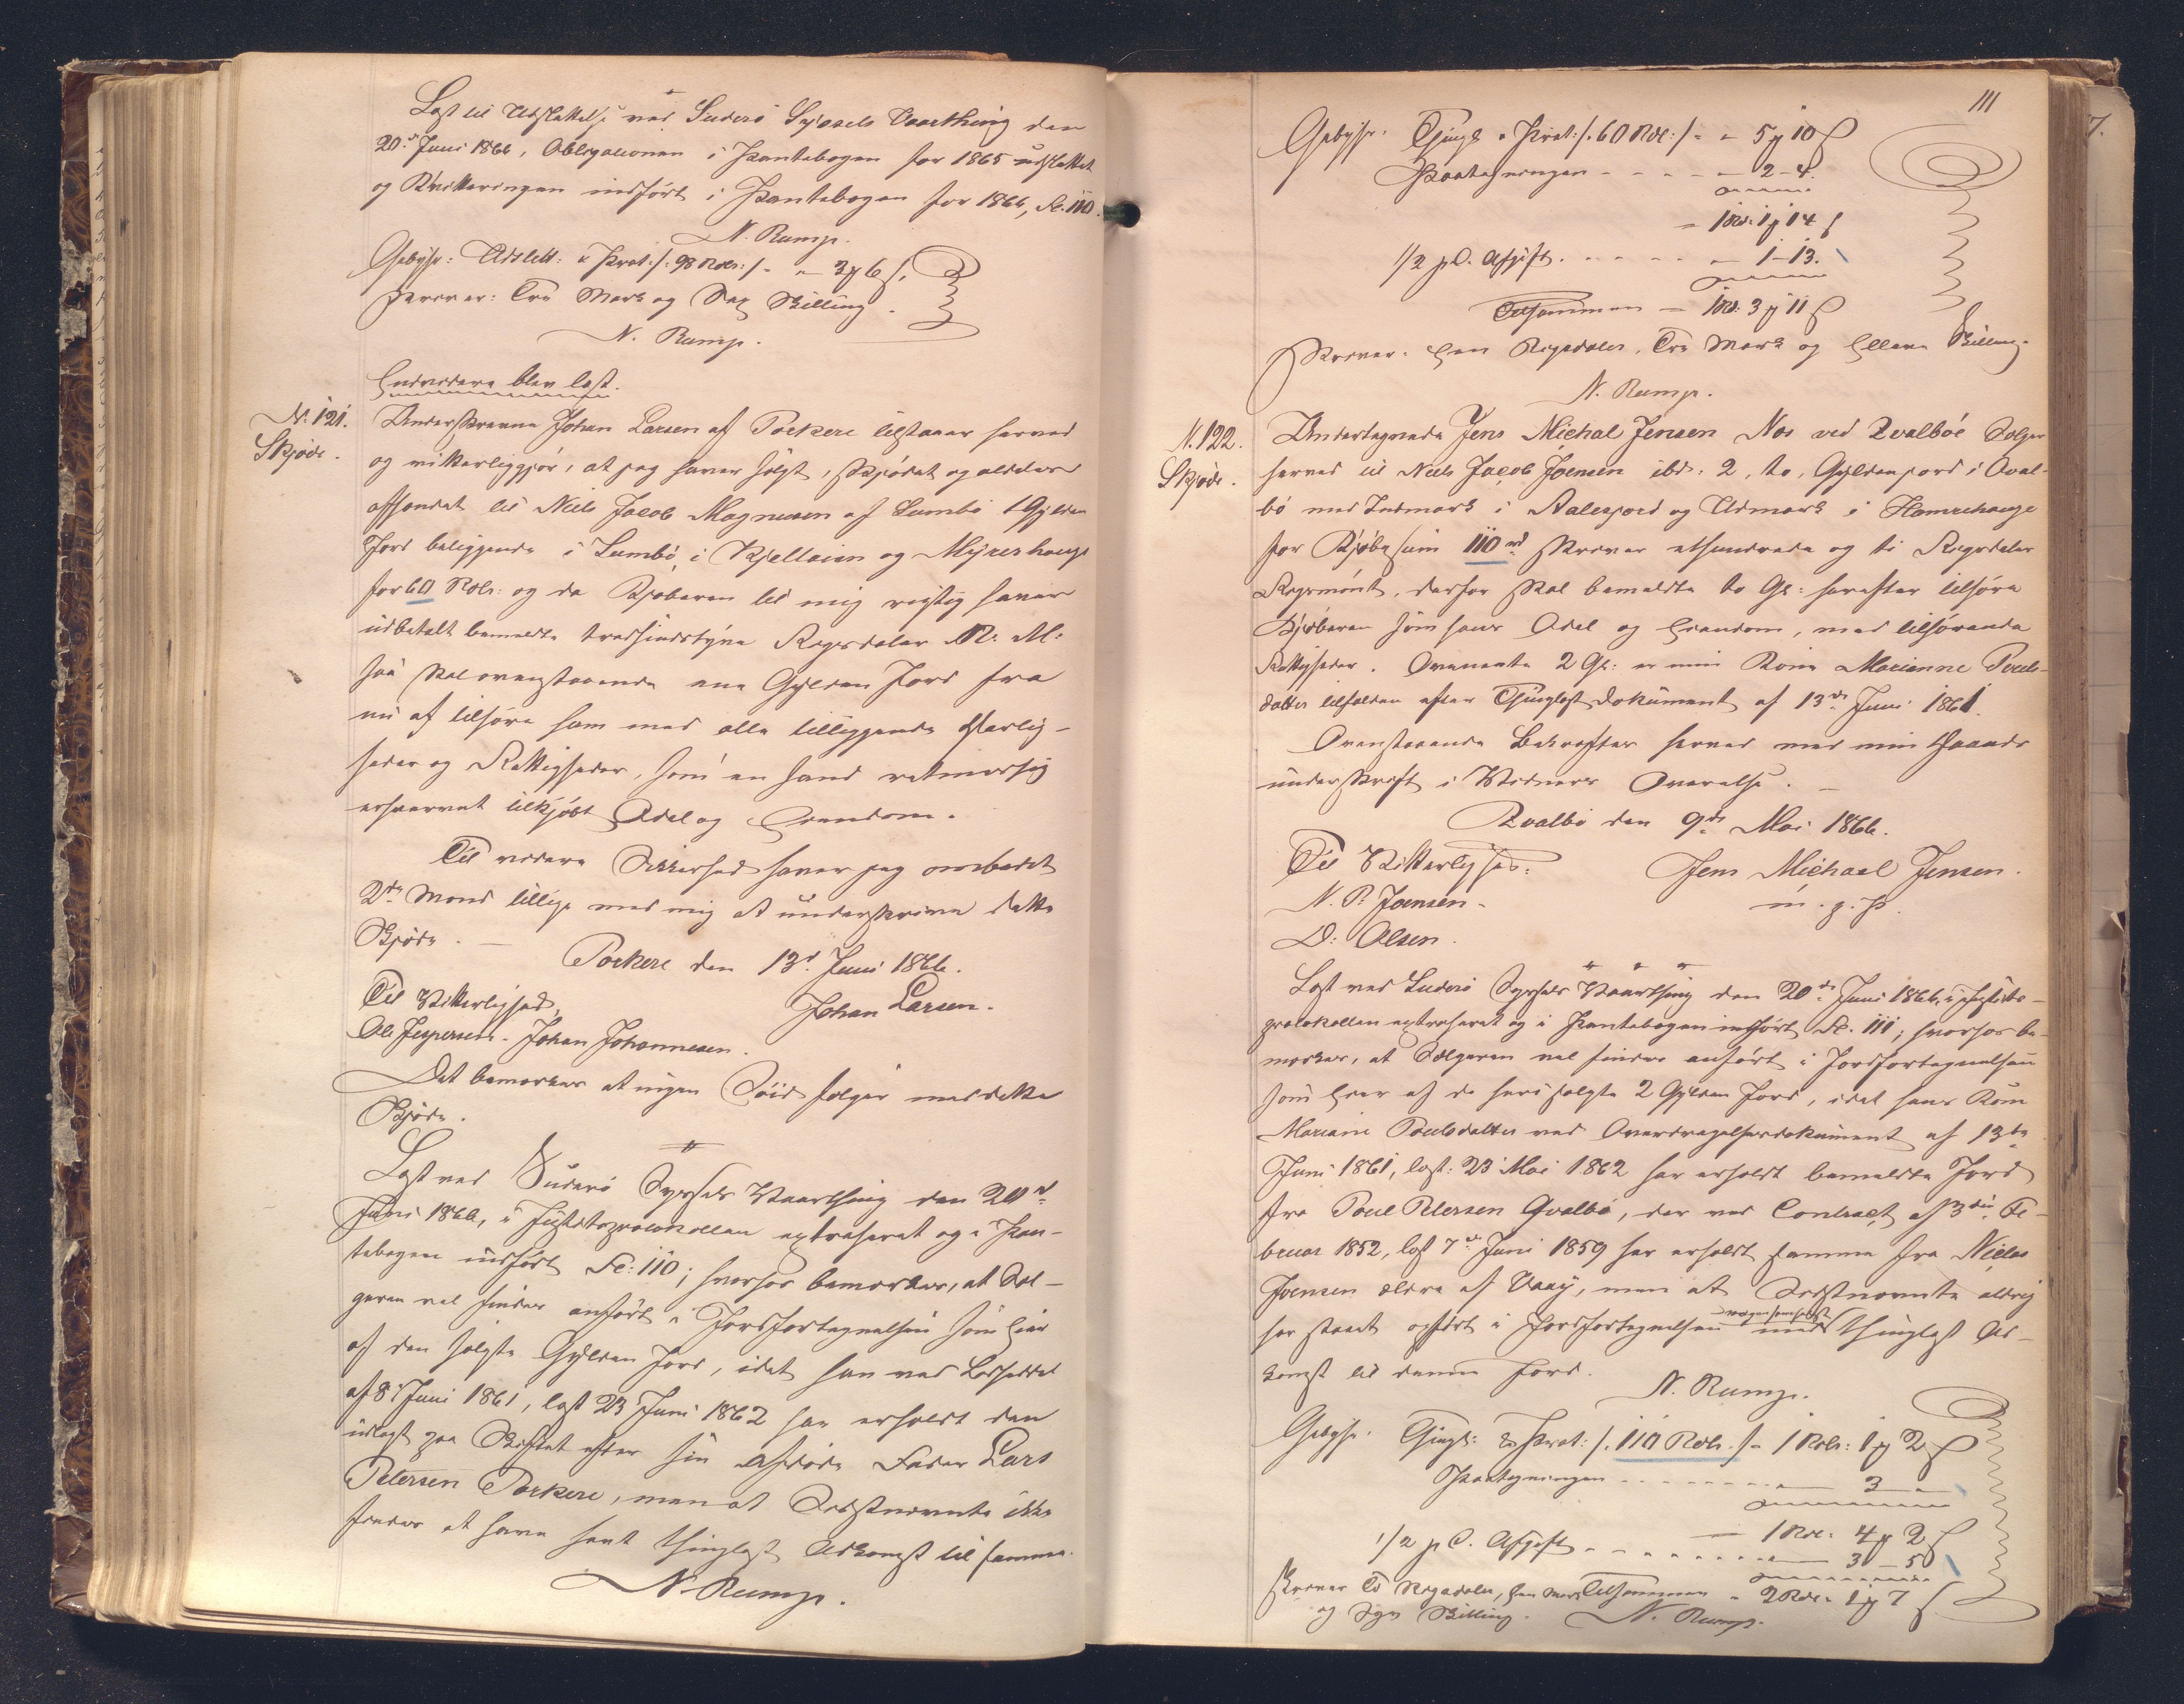 Læst til Udslettelse ved Suderö Syssels Vaarthing den
20de Juni 1866, Obligationen i Pantebogen for 1865 udslettet
og Kvitteringen indført i Pantebogen for 1866, Fo. 110.
N. Rump.
Gebyhr: Udslett: a Prot: /: 98 Rdlr: /: " 3 ₰ 6 ß.
skriver: Tre Mark og Sex Skilling.
N. Rump.
Endvidere blev læst.
No. 121.
Skjøde.
Underskrevne Johan Larsen af Porkere tilstaaer herved
og vitterliggjør, at jeg haver solgt, skjødet og aldeles
afhændet til Niels Jacob Magnusen af Sumbö 1 Gylden
Jord beliggende i Sumbö, i Kjelleim og Myrerhauge
for 60 Rdlr: og da Kjøberen til mig rigtig haver
udbetalt bemeldte tredsindstyve Rigsdaler R: M:
saa skal ovenstaaende ene Gylden Jord fra
nu af tilhøre ham med alle tilliggende Herlig-
heder og Rettigheder, som en sand retmæssig
erhvervet tilkjøbt Odel og Eiendom.
Til videre Sikkerhed haver jeg ombedet
2de Mænd tillige med mig at underskrive dette
Skjøde.
Porkere den 13d Juni 1866.
Til Vitterlighed,
Johan Larsen.
Ole Jespersen. Johan Johannesen.
Det bemærkes at ingen Söid følger med dette
Skjøde.
Læst ved Suderö Syssels Vaarthing den 20d
Juni 1866, i Justitsprotokollen extraheret og i Pan-
tebogen indført Fo: 110; hvorhos bemærkes, at Sæl-
geren vel findes anført i Jordfortegnelsen som Eier
af den solgte Gylden Jord, idet han ved Lodseddel
af 8d Juni 1861, læst 23 Juni 1862 har erholdt den
udlagt paa Skiftet efter sin afdøde Fader Lars
Petersen Porkere, men at Sidstnævnte ikke
findes at have havt thinglæst Adkomst til samme.
N. Rump.
111
Gebyhr. Thingl. a Prot: /: 60 Rdl: /: " 5 ₰ 10 ß
Paategningen - - - - " 2 - 4.
" 1 Rd. 1 ₰ 14 ß
1/2 p C. Afgift. - - - - " 1 - 13.
Tilsammen " 1 Rd: 3 ₰ 11 ß
skriver: Een Rigsdaler, Tre Mark og Elleve Skilling.
N. Rump.
N. 122.
Skjøde.
Undertegnede Jens Michal Jensen Nes ved Qvalböe Sælger
herved til Niels Jacob Joensen ibd: 2, to, Gylden jord i Qval-
bö med Indmark i Aalesjord og Udmark i Hamrehauge
for Kjøbesum 110 rd skriver ethundrede og ti Rigsdaler
Rigsmønt, derfor skal bemeldte to Gl: herefter tilhøre
Kjøberen som hans Odel og Eiendom, med tilhørende
Rettigheder. Ovennævnte 2 Gl: er min Kone Marianne Pouls-
datter tilfalden efter Thinglæst Dokument af 13de Juni 1861.
Ovenstaaende Bekræftes herved med min Haands
underskrift i Vidners Overværelse.
Qvalbö den 9de Mai 1866.
Til Vitterlighed:
Jens Michael Jensen.
N. P. Joensen.
m. f. P.
D: Olsen.
Læst ved Suderö Syssels Vaarthing den 20de Juni 1866, i Justits-
protokollen extraheret og i Pantebogen indført Fo. 111; hvorhos be-
mærkes, at Sælgeren vel findes anført i Jordfortegnelsen
som Eier af de heri solgte 2 Gylden Jord, idet hans Kone
Mariane Poulsdatter ved Overdragelsesdokument af 13de
Juni 1861, læst: 23 Mai 1862 har erholdt bemeldte Jord
fra Poul Petersen Qvalbö, der ved Contract af 3die Fe-
bruar 1852, læst 7de Juni 1859 har erholdt samme fra Niclas
Joensen ældre af Vaag, men at Sidstnævnte aldrig
har staaet opført i Jordfortegnelsen med thinglæst Ad-
komst til denne Jord.
N. Rump.
Gebyhr. Thingl: & Prot: /: 110 Rdlr. /: 1 Rdlr: 1 ₰ 2 ß
Paategningen - - - - 3 - "
1 Rdl: 4 ₰ 2 ß
1/2 p C. Afgift - - - - " 3 - 5
skriver To Rigsdaler, Een Mark Tilsammen " 2 Rdl: 1 ₰ 7 ß
og Syv Skilling. N. Rump.